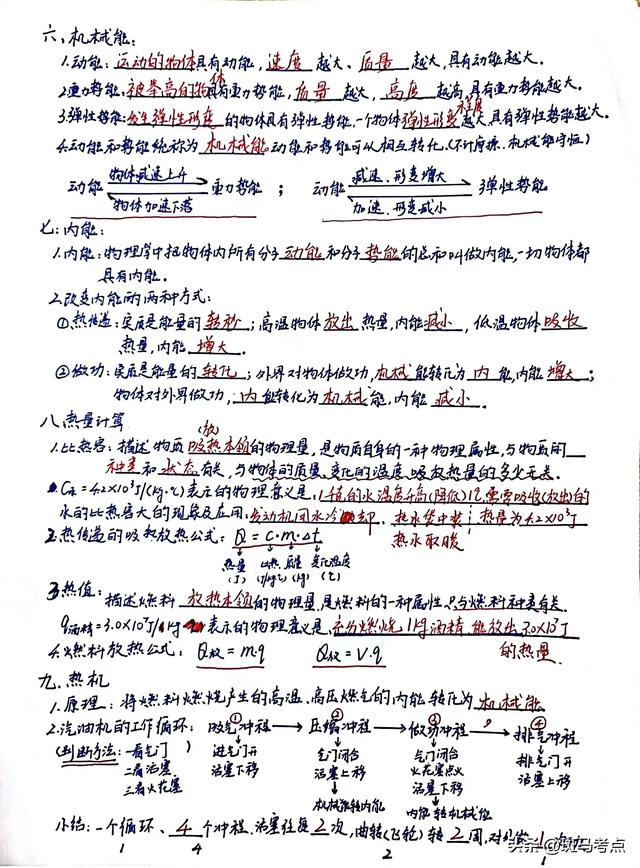 六、机械能:
1.动能:运动的物体具有动能,速度越大、质量越大,具有动能越大。
2.重力势能:被举高的物体具有重力势能,质量越大,高度越高,具有重力势能越大。
3.弹性势能:发生弹性形变的物体具有弹性势能,一个物体弹性形变程度越大,具有弹性势能越大。
4.动能和势能统称为机械能,动能和势能可以相互转化。(不计摩擦、机械能守恒)
动能 物体减速上升 重力势能 ; 动能 减速、形变增大 弹性势能
物体加速下落 加速、形变减小
七、内能:
1.内能:物理学中把物体内所有分子动能和分子势能的总和叫做内能,一切物体都
具有内能。
2.改变内能的两种方式:
①热传递:实质是能量的转移;高温物体放出热量,内能减小,低温物体吸收
热量,内能增大。
②做功:实质是能量的转化;外界对物体做功,机械能转化为内能,内能增大;
物体对外界做功,内能转化为机械能,内能减小。
八、热量计算 (放)
1.比热容:描述物质吸热本领的物理量,是物质自身的一种物理属性,与物质的
种类和状态有关,与物体的质量、变化的温度、吸放热量的多少无关。
C水=4.2×10³J/(kg·℃)表示的物理意义是:1千克的水温度升高(降低)1℃,需要吸收(放出)的
水的比热容大的现象及应用:发动机用水冷却、热水袋中装 热量为4.2×10³J
2.热传递的吸热放热公式:Q=c·m·Δt 热水取暖
热量 比热 质量 变化温度
(J) (J/kg℃) (kg) (℃)
3.热值:
描述燃料放热本领的物理量,是燃料的一种属性,只与燃料种类有关。
q酒精=3.0×10⁷J/kg 表示的物理意义是充分燃烧1kg酒精能放出3.0×10⁷J
4.燃料放热公式:Q放=m·q Q放=V·q 的热量
九、热机
1.原理:将燃料燃烧产生的高温、高压燃气的内能转化为机械能
2.汽油机的工作循环:吸气冲程① 压缩冲程② 做功冲程③ 排气冲程④
(判断方法:一看气门) 进气门开 气门闭合 气门闭合 排气门开
二看活塞 活塞下移 活塞上移 火花塞点火 活塞上移
三看火花塞 活塞下移
机械能转内能 内能转机械能
小结:一个循环、4个冲程、活塞往复2次,曲轴(飞轮)转2周,对外做1次功
1 4 2 1
头条@斑马考点